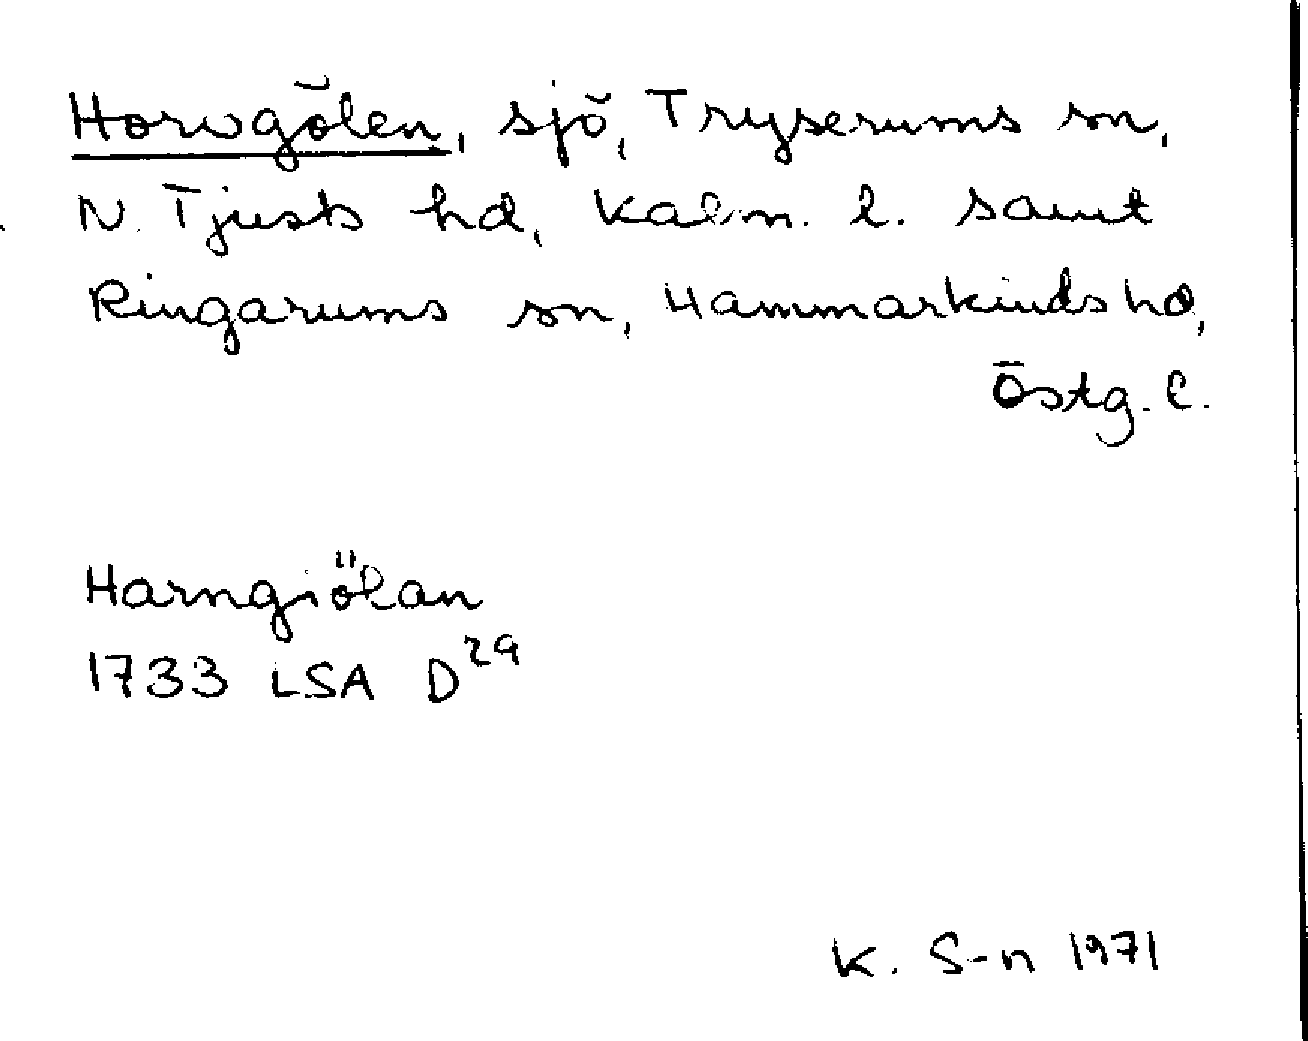 Horvgölen, sjö, Tryserums sn,
N. Tjusts hd, Kalm. l. samt
Ringarums sn, Hammarkinds hd,
Östg. l.
Harngiölan
1733 LSA D29
K. S-n 1971